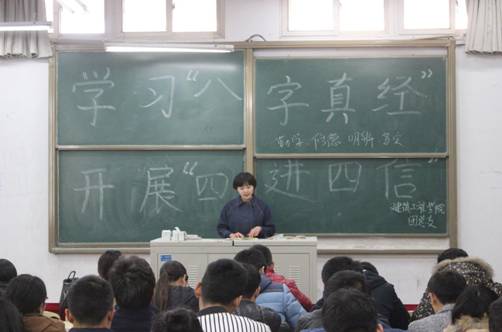 学习“八字真经”
勤学 修德 明辨 笃实
开展“四进四信”
建筑工程学院
团总支